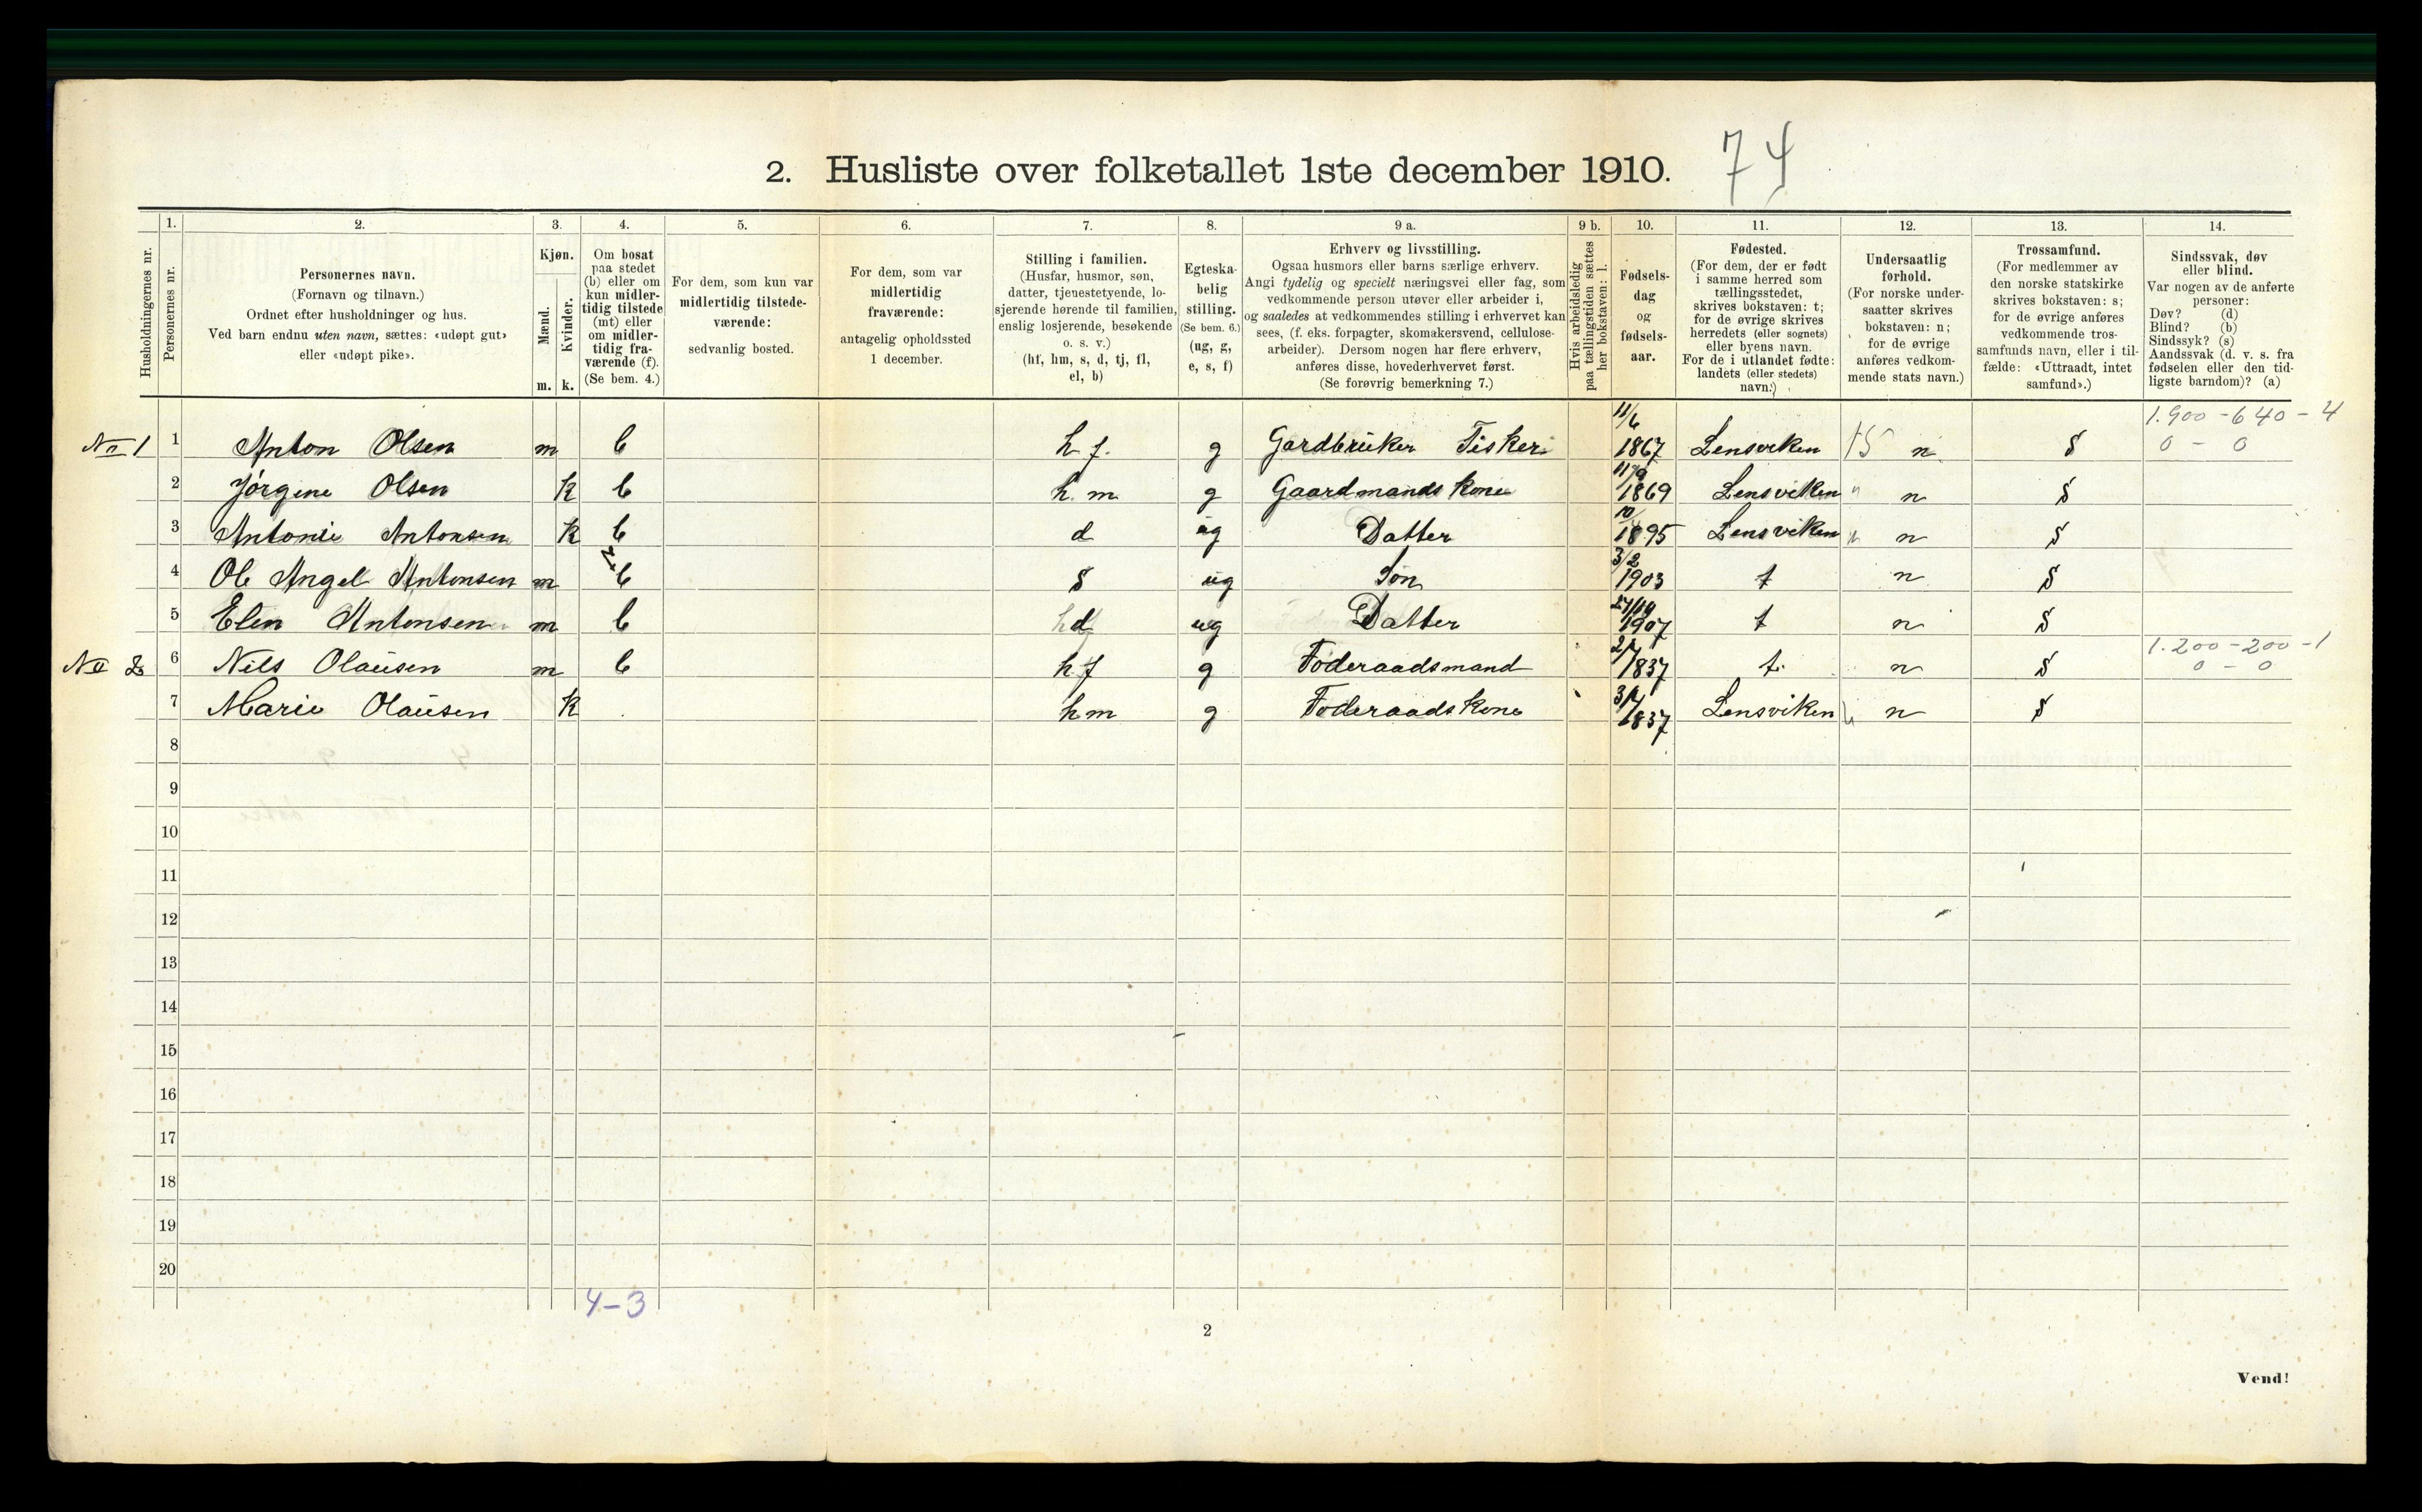 2. Husliste over folketallet 1ste december 1910. 74
1. 2. 3. 4. 5. 6. 7. 8. 9 a. 9 b. 10. 11. 12. 13. 14.
Husholdningernes nr.
Personernes nr.
Personernes navn.
(Fornavn og tilnavn.)
Ordnet efter husholdninger og hus.
Ved barn endnu uten navn, sættes: «udøpt gut»
eller «udøpt pike».
Kjøn.
Mænd.
m.
Kvinder.
k.
Om bosat
paa stedet
(b) eller om
kun midler-
tidig tilstede
(mt) eller
om midler-
tidig fra-
værende (f).
(Se bem. 4.)
For dem, som kun var
midlertidig tilstede-
værende:
sedvanlig bosted.
For dem, som var
midlertidig
fraværende:
antagelig opholdssted
1 december.
Stilling i familien.
(Husfar, husmor, søn,
datter, tjenestetyende, lo-
sjerende hørende til familien,
enslig losjerende, besøkende
o. s. v.)
(hf, hm, s, d, tj, fl,
el, b)
Egteska-
belig
stilling.
(Se bem. 6.)
(ug, g,
e, s, f)
Erhverv og livsstilling.
Ogsaa husmors eller barns særlige erhverv.
Angi tydelig og specielt næringsvei eller fag, som
vedkommende person utøver eller arbeider i,
og saaledes at vedkommendes stilling i erhvervet kan
sees, (f. eks. forpagter, skomakersvend, cellulose-
arbeider). Dersom nogen har flere erhverv,
anføres disse, hovederhvervet først.
(Se forøvrig bemerkning 7.)
Hvis arbeidsledig
paa tællingstiden sættes
her bokstaven: l.
Fødsels-
dag
og
fødsels-
aar.
Fødested.
(For dem, der er født
i samme herred som
tællingsstedet,
skrives bokstaven: t;
for de øvrige skrives
herredets (eller sognets)
eller byens navn.
For de i utlandet fødte:
landets (eller stedets)
navn.)
Undersaatlig
forhold.
(For norske under-
saatter skrives
bokstaven: n;
for de øvrige
anføres vedkom-
mende stats navn.)
Trossamfund.
(For medlemmer av
den norske statskirke
skrives bokstaven: s;
for de øvrige anføres
vedkommende tros-
samfunds navn, eller i til-
fælde: «Uttraadt, intet
samfund».)
Sindssvak, døv
eller blind.
Var nogen av de anførte
personer:
Døv? (d)
Blind? (b)
Sindssyk? (s)
Aandssvak (d. v. s. fra
fødselen eller den tid-
ligste barndom)? (a)
11/6 1.900 - 640 - 4
No 1 1 Anton Olsen m b hf. g Gardbruker Fisker 1867 Lensviken 15 n S 0 - 0
2 Jørgine Olsen K b h. m g Gaardmands Kone 1869 Lensviken " n S
3 Antonie Antonsen K b d ug Datter 1895 Lensviken n S
3/2
4 Ole Angel Antonsen m b s ug Søn 1903 t n S
5 Elen Antonsen m b d ug Datter 1907 t n S
1.200 - 200 - 1
No 2 6 Nils Olausen m b hf g Føderaadsmand 1837 t. n S 0 - 0
7 Marie Olausen K hm g Føderaads Kone 1837 Lensviken n S
8
9
10
11
12
13
14
15
16
17
18
19
20
4-3
2
Vend!